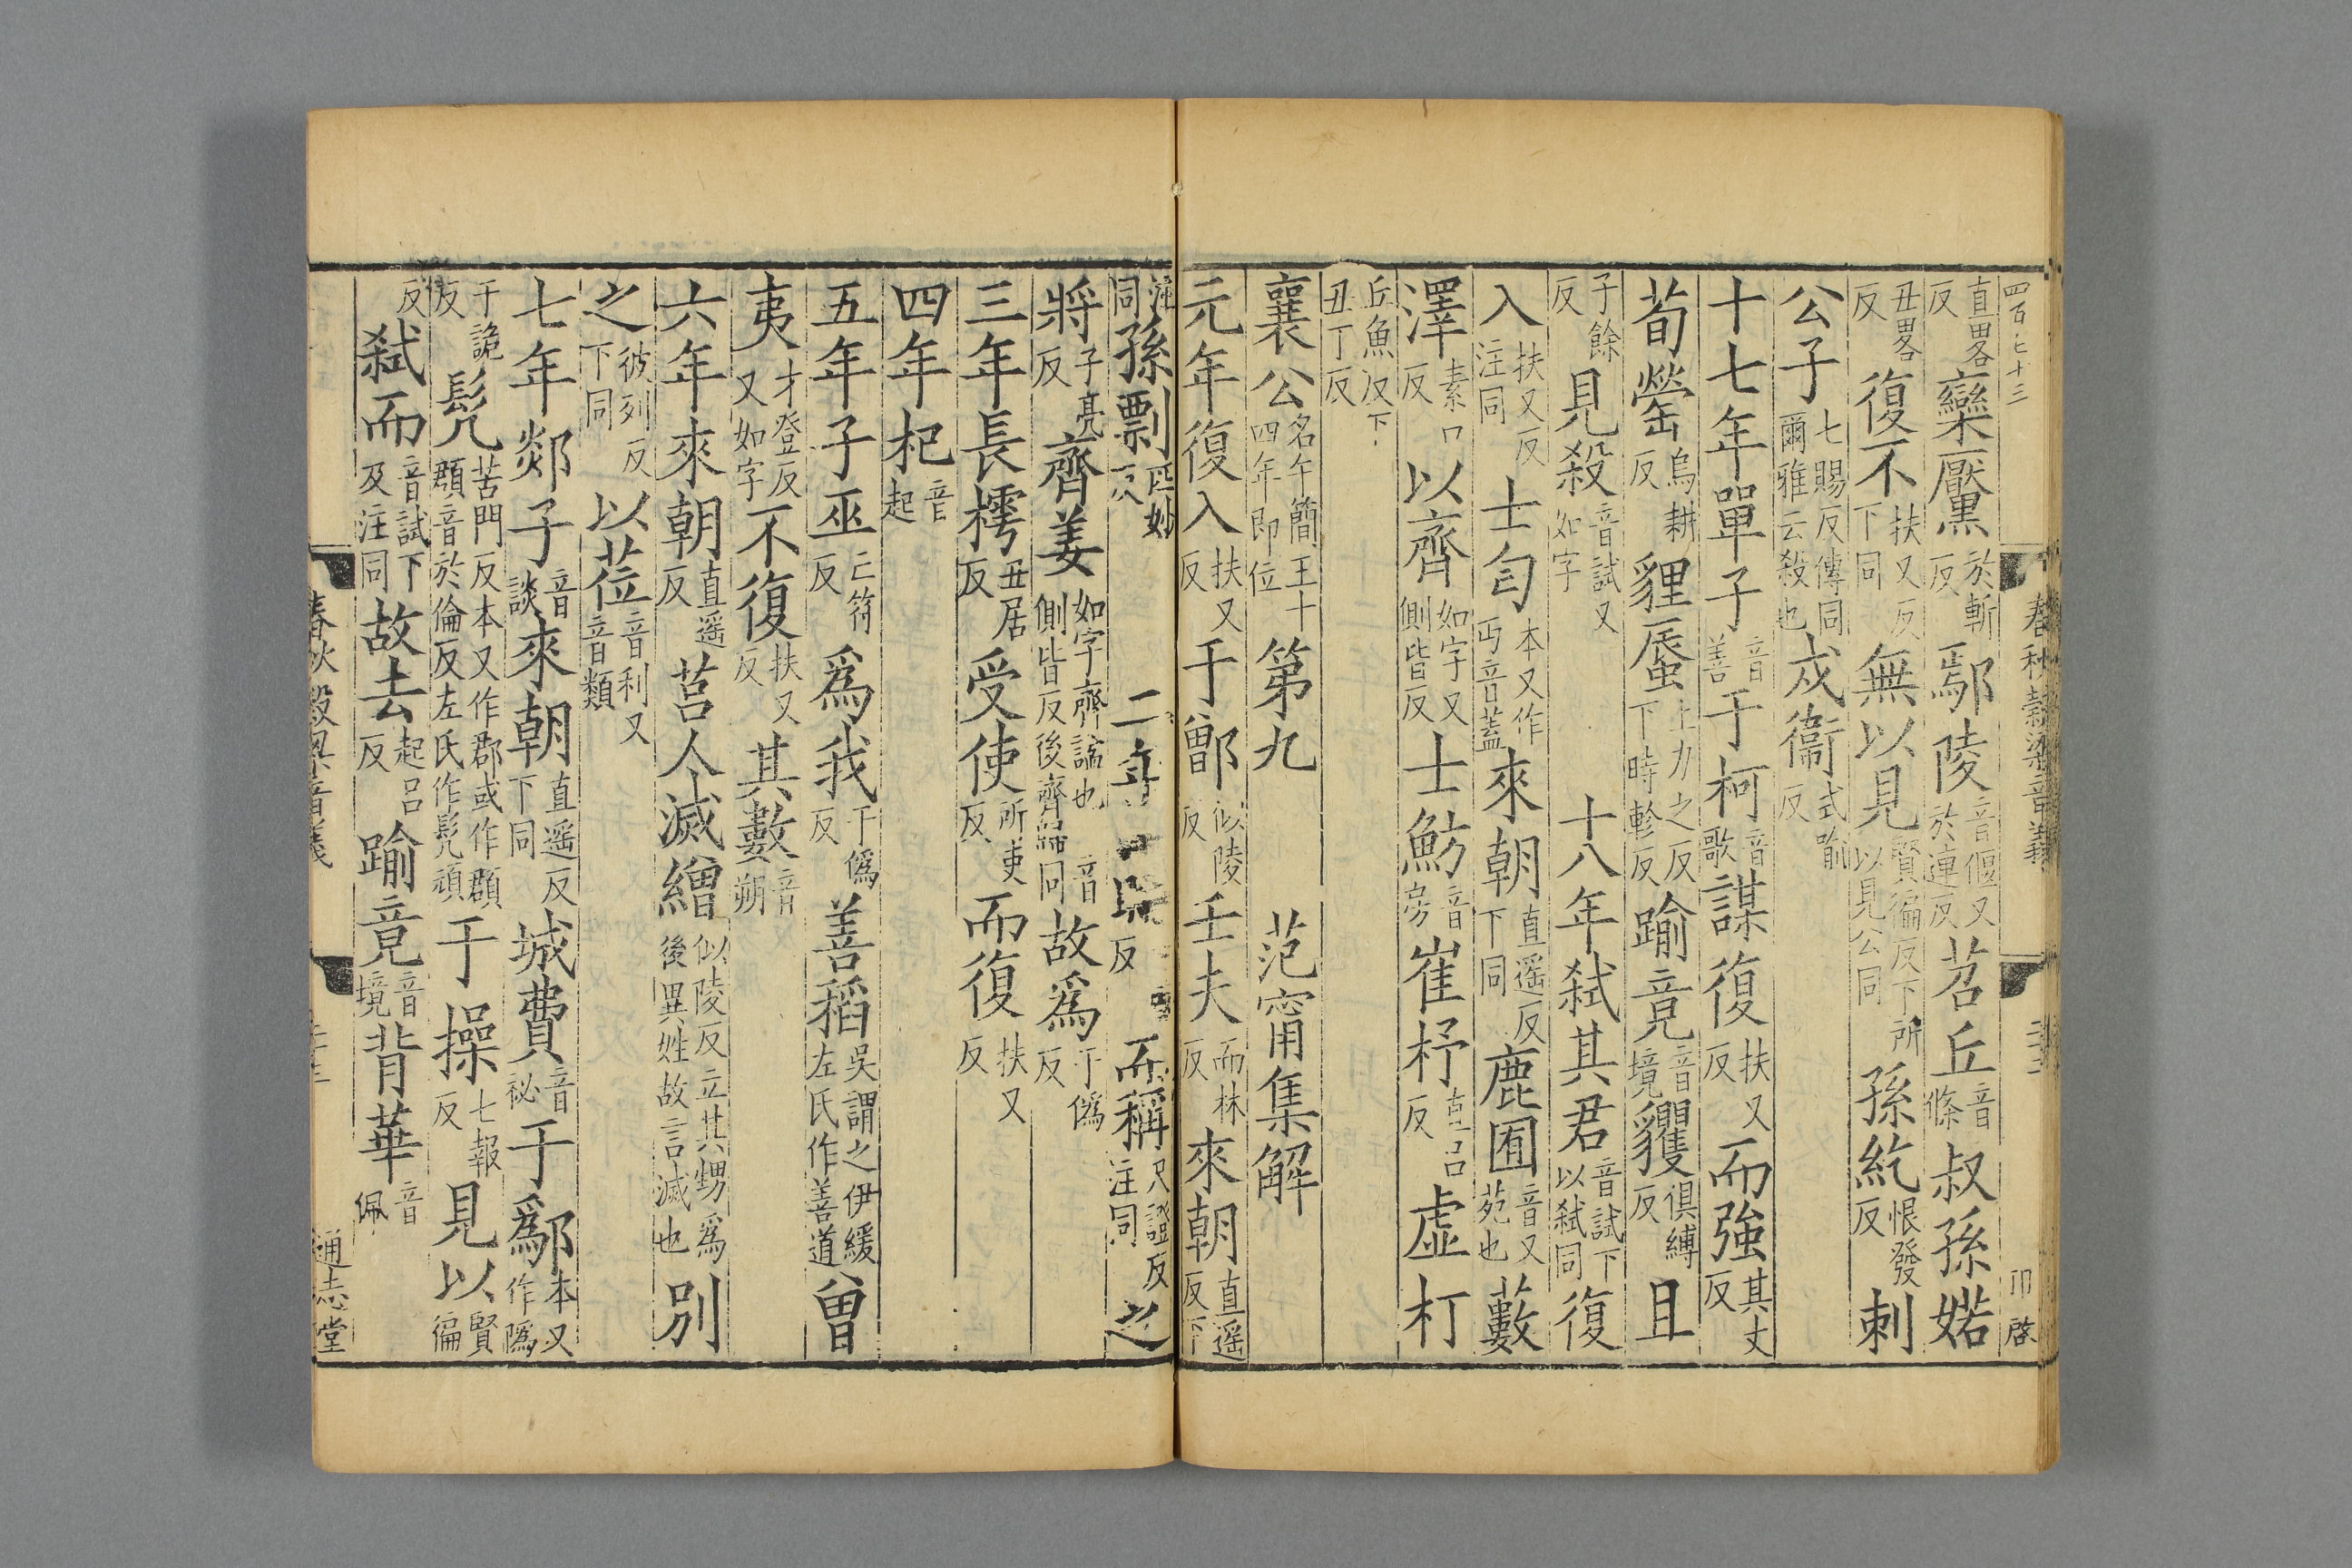 四百七十三
春秋穀梁音義
卬啓
直畧反欒黶於斬反鄢陵音偃又於連反苕丘音條叔孫婼
丑畧反復不扶又反下同無以見賢徧反下所以見公同孫紇恨發反刺
公子七賜反傳同爾雅云殺也戍衞式喻反
十七年單子音善于柯音歌謀復扶又反而強其丈反
荀罃烏耕反貍蜃上力之反下時軫反踰竟音境玃俱縛反且
子餘反見殺音試又如字十八年弒其君音試下以弒同復
入扶又反注同士匄本又作丐音蓋來朝直遥反下同鹿囿音又苑也藪
澤素口反以齊如字又側皆反士魴音房崔杼直呂反虛朾
丘魚反下丑丁反
襄公名午簡王十四年即位第九范甯集解
元年復入扶又反于鄫似陵反壬夫而林反來朝直遥反下
注同孫剽匹妙反二年反而稱尺證反注同之
將子亮反齊姜如字齊謚也側皆反後齊歸同音故爲于僞反
三年長樗丑居反受使所吏反而復扶又反
四年杞音起
五年子巫亡符反爲我于僞反善稻吳謂之伊緩左氏作善道曾
夷才登反又如字不復扶又反其數音朔
六年來朝直遥反莒人滅繒似陵反立其甥爲後異姓故言滅也別
之彼列反下同以莅音利又音類
七年郯子音談來朝直遥反下同城費音祕于鄬本又作隝
于詭反髠苦門反本又作郡或作頵頵音於倫反左氏作髠頑于操七報反見以賢徧
反弒而音試下及注同故去起呂反踰竟音境背華音佩
春秋穀梁音義
通志堂